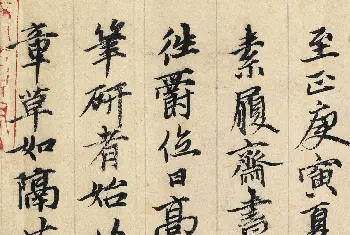 至正庚寅夏
素履齋書
往爵位日高
筆研者始
章草如隔